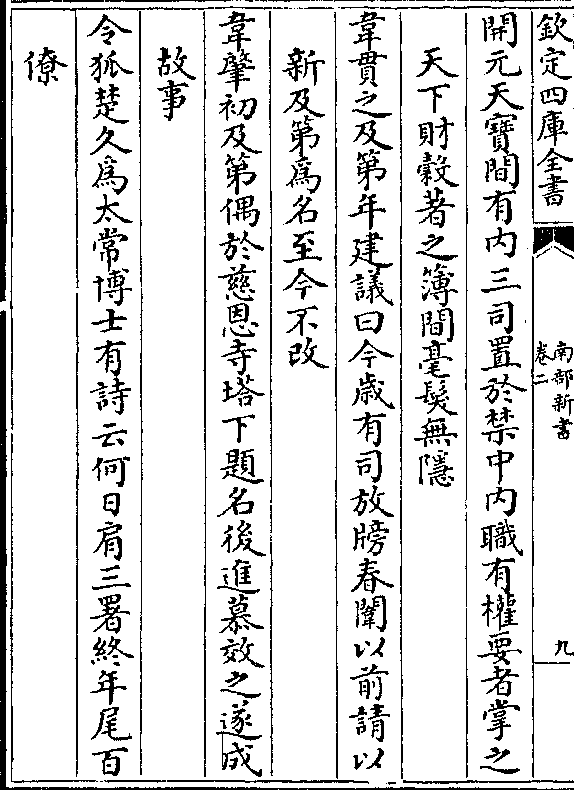 欽定四庫全書
南部新書
卷二
九
開元天寶間有内三司置於禁中内職有權要者掌之
天下財穀著之簿間毫髮無隱
韋貫之及第年建議曰今歲有司放牓春闈以前請以
新及第為名至今不改
韋肇初及第偶於慈恩寺塔下題名後進慕效之遂成
故事
令狐楚久為太常博士有詩云何日肩三署終年尾百
僚